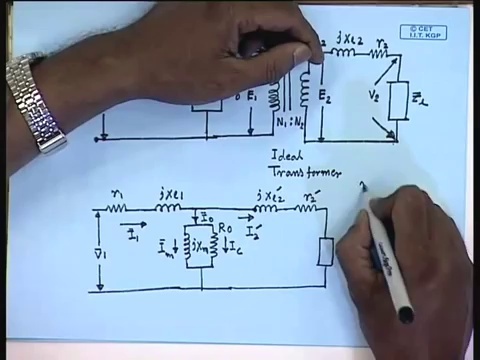 © CET
I.I.T. KGP
2 jxe2 r2
E1 E2 V2 Z̄L
N1 : N2
Ideal
Transformer
r1 jxe1 jxe2′ r2′
Ī0
V̄1 Ī1 Īm jXm R0 Ic I2′